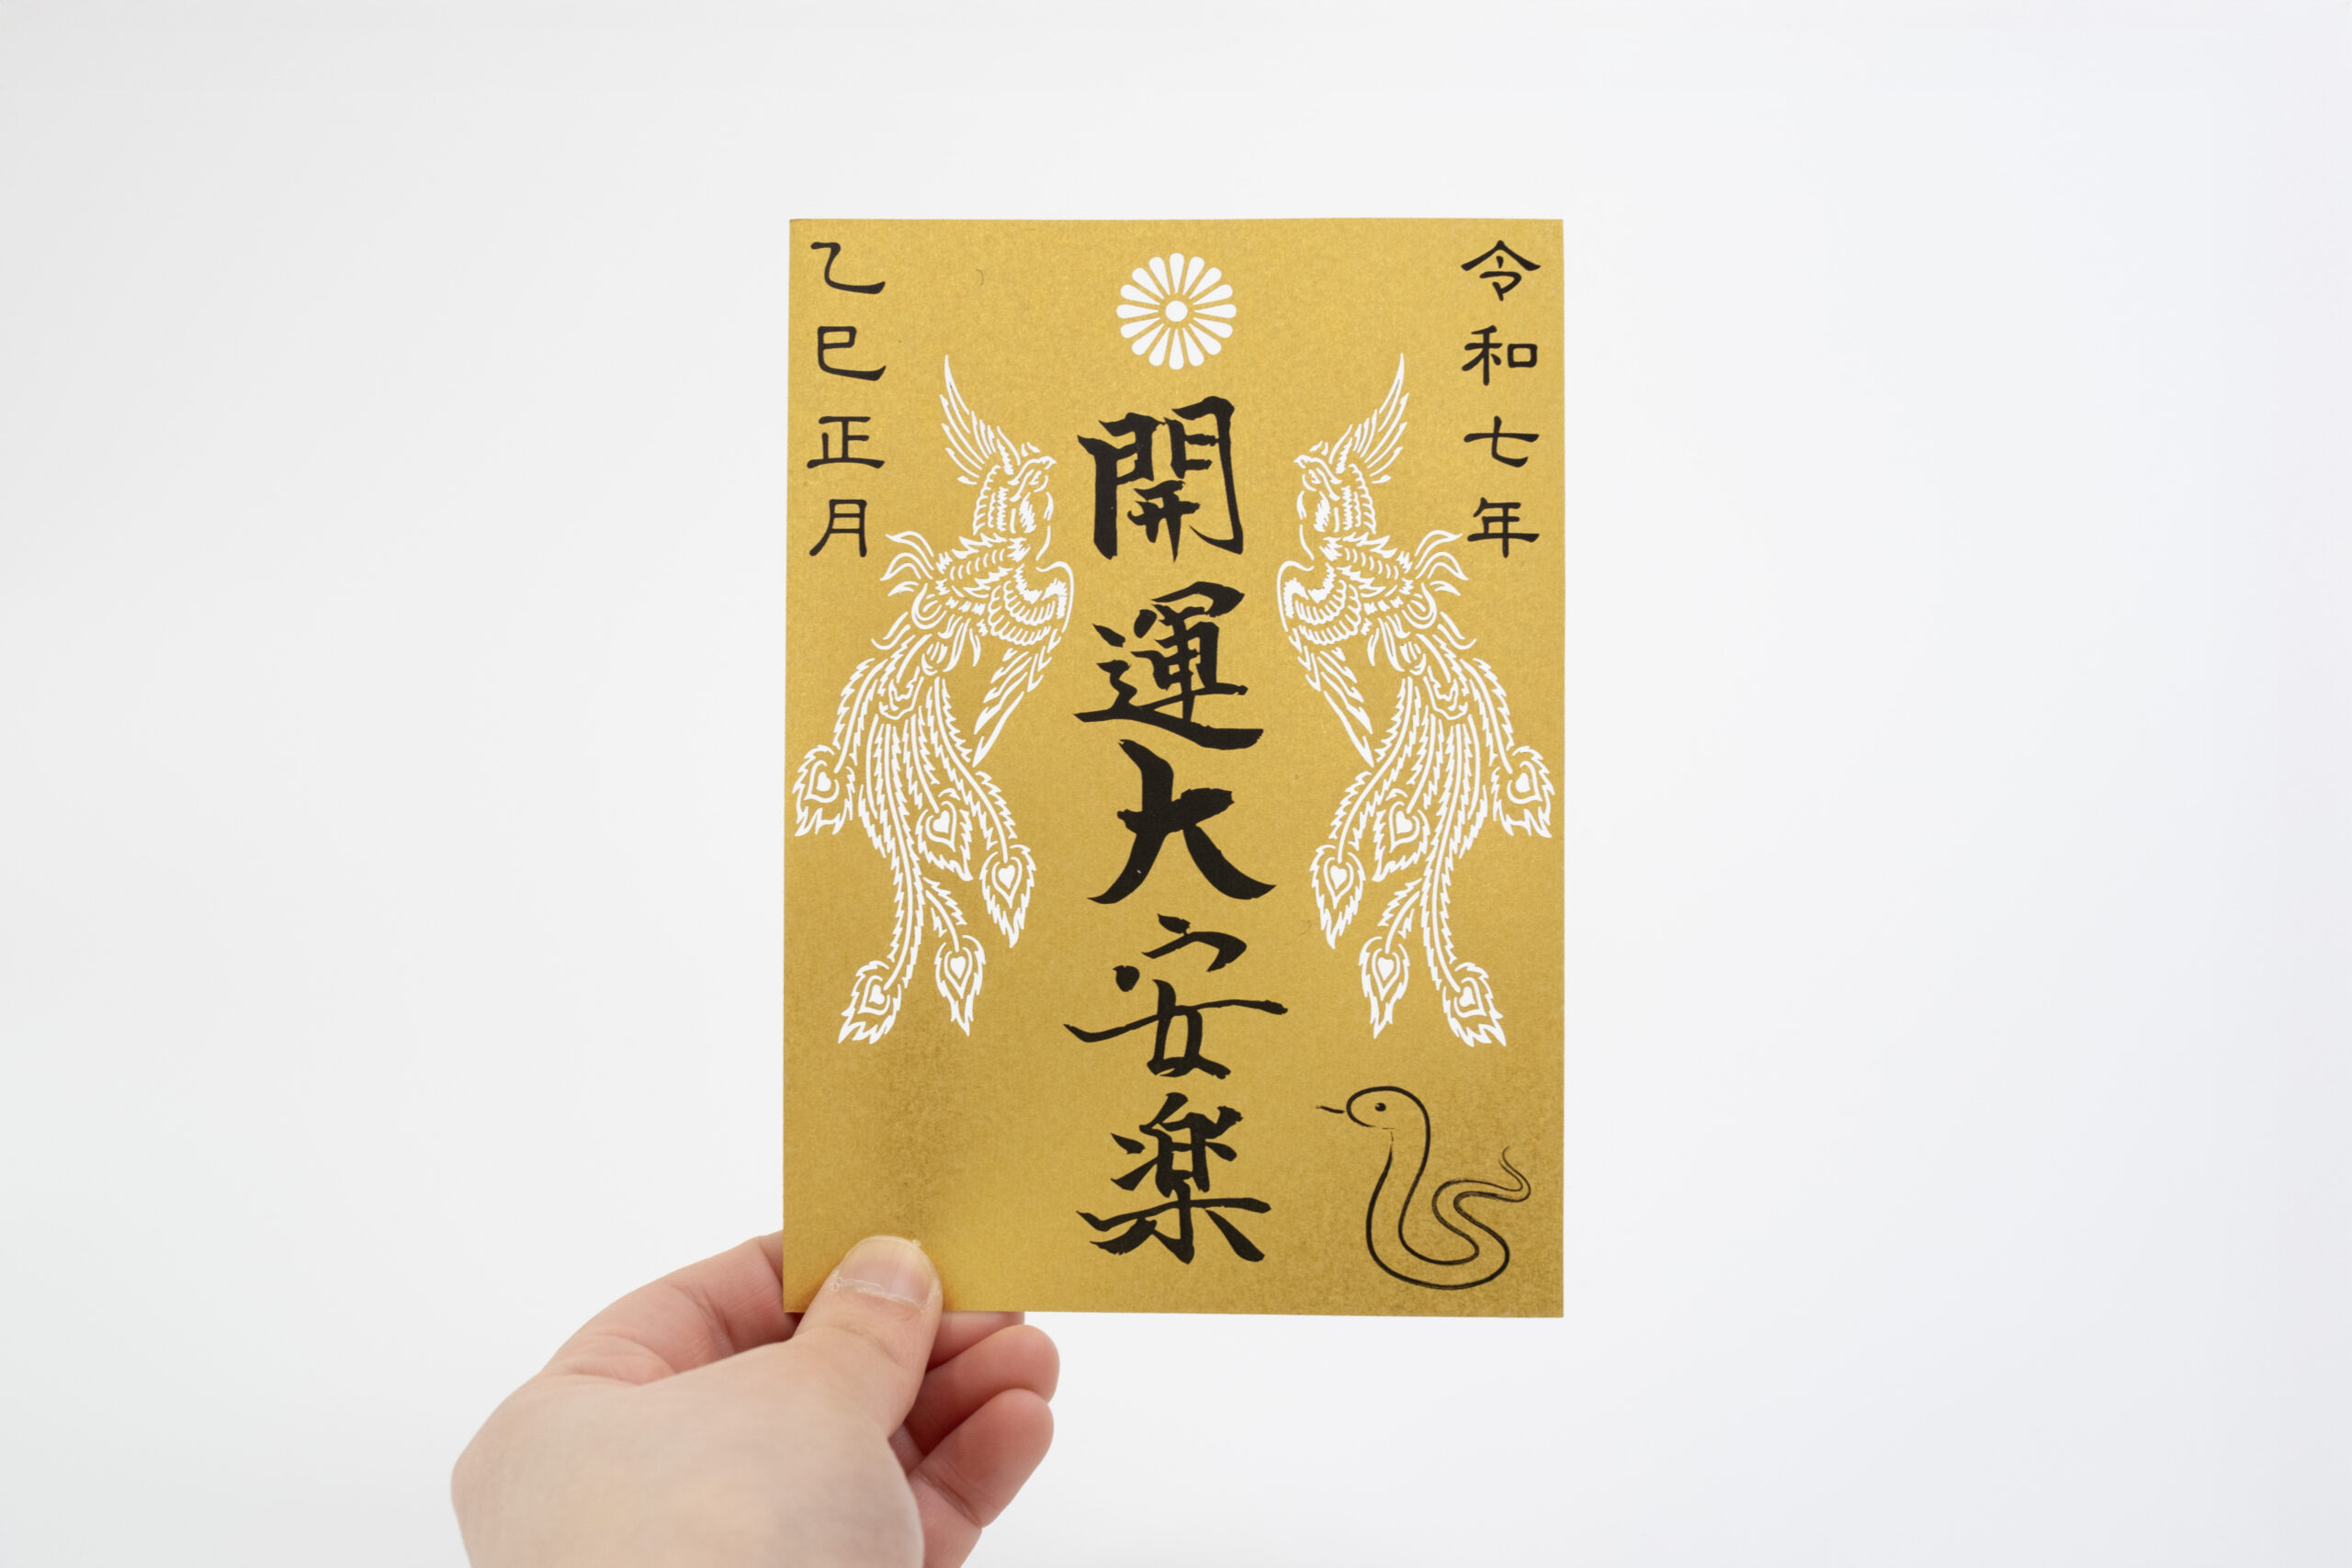 令和七年
開運大安楽
乙巳正月